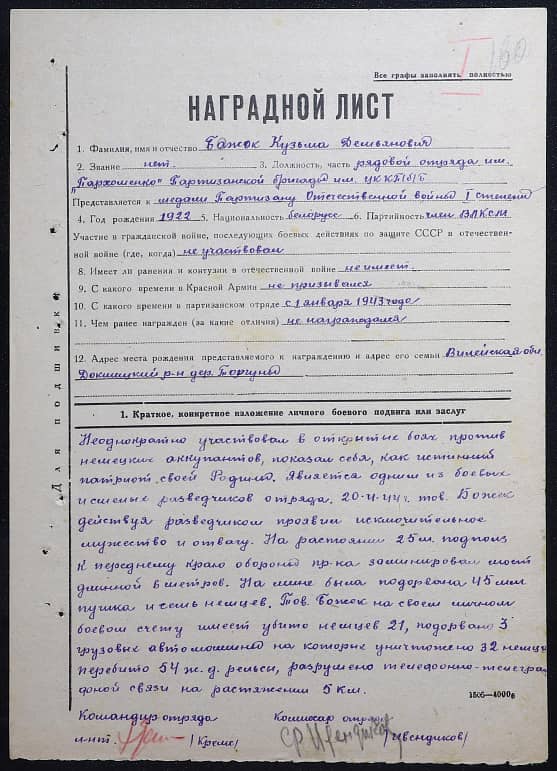 160
I
Все графы заполнять полностью
НАГРАДНОЙ ЛИСТ
1. Фамилия, имя и отчество Божок Кузьма Демьянович
2. Звание нет. 3. Должность, часть рядовой отряда им.
"Пархоменко" Партизанской бригады им. ЦК КП(б)Б
Представляется к медали Партизану Отечественной войны I степени
4. Год рождения 1922 5. Национальность белорусс 6. Партийность член ВЛКСМ
Участие в гражданской войне, последующих боевых действиях по защите СССР в отечествен-
ной войне (где, когда) не участвовал
8. Имеет ли ранения и контузии в отечественной войне не имеет.
9. С какого времени в Красной Армии не призывался
10. С какого времени в партизанском отряде с 1 января 1943 года
11. Чем ранее награжден (за какие отличия) не награждался
12. Адрес места рождения представляемого к награждению и адрес его семьи Вилейская обл.
Докшицкий р-н дер. Торгуны
Для подшивки
1. Краткое, конкретное изложение личного боевого подвига или заслуг
Неоднократно участвовал в открытых боях против
немецких аккупантов, показал себя, как истинный
патриот своей Родины. Является одним из боевых
и смелых разведчиков отряда. 20-4-44г. тов. Божок
действуя разведчиком проявил исключительное
мужество и отвагу. На растоянии 25м. подполз
к переднему краю обороны пр-ка заминировал мост
длинной 8 метров. На мине была подорвана 45мм
пушка и семь немцев. Тов. Божок на своем личном
боевом счету имеет убито немцев 21, подорвано 3
грузовых автомошины на которых уничтожено 32 немца
перебито 54 ж.д. рельсы, разрушено телефонно-телеграф
фоной связи на растяжении 5 км.
1505—4000в
Командир отряда Комиссар отряда
л-нт. /Кремс/ /Ивендиков/